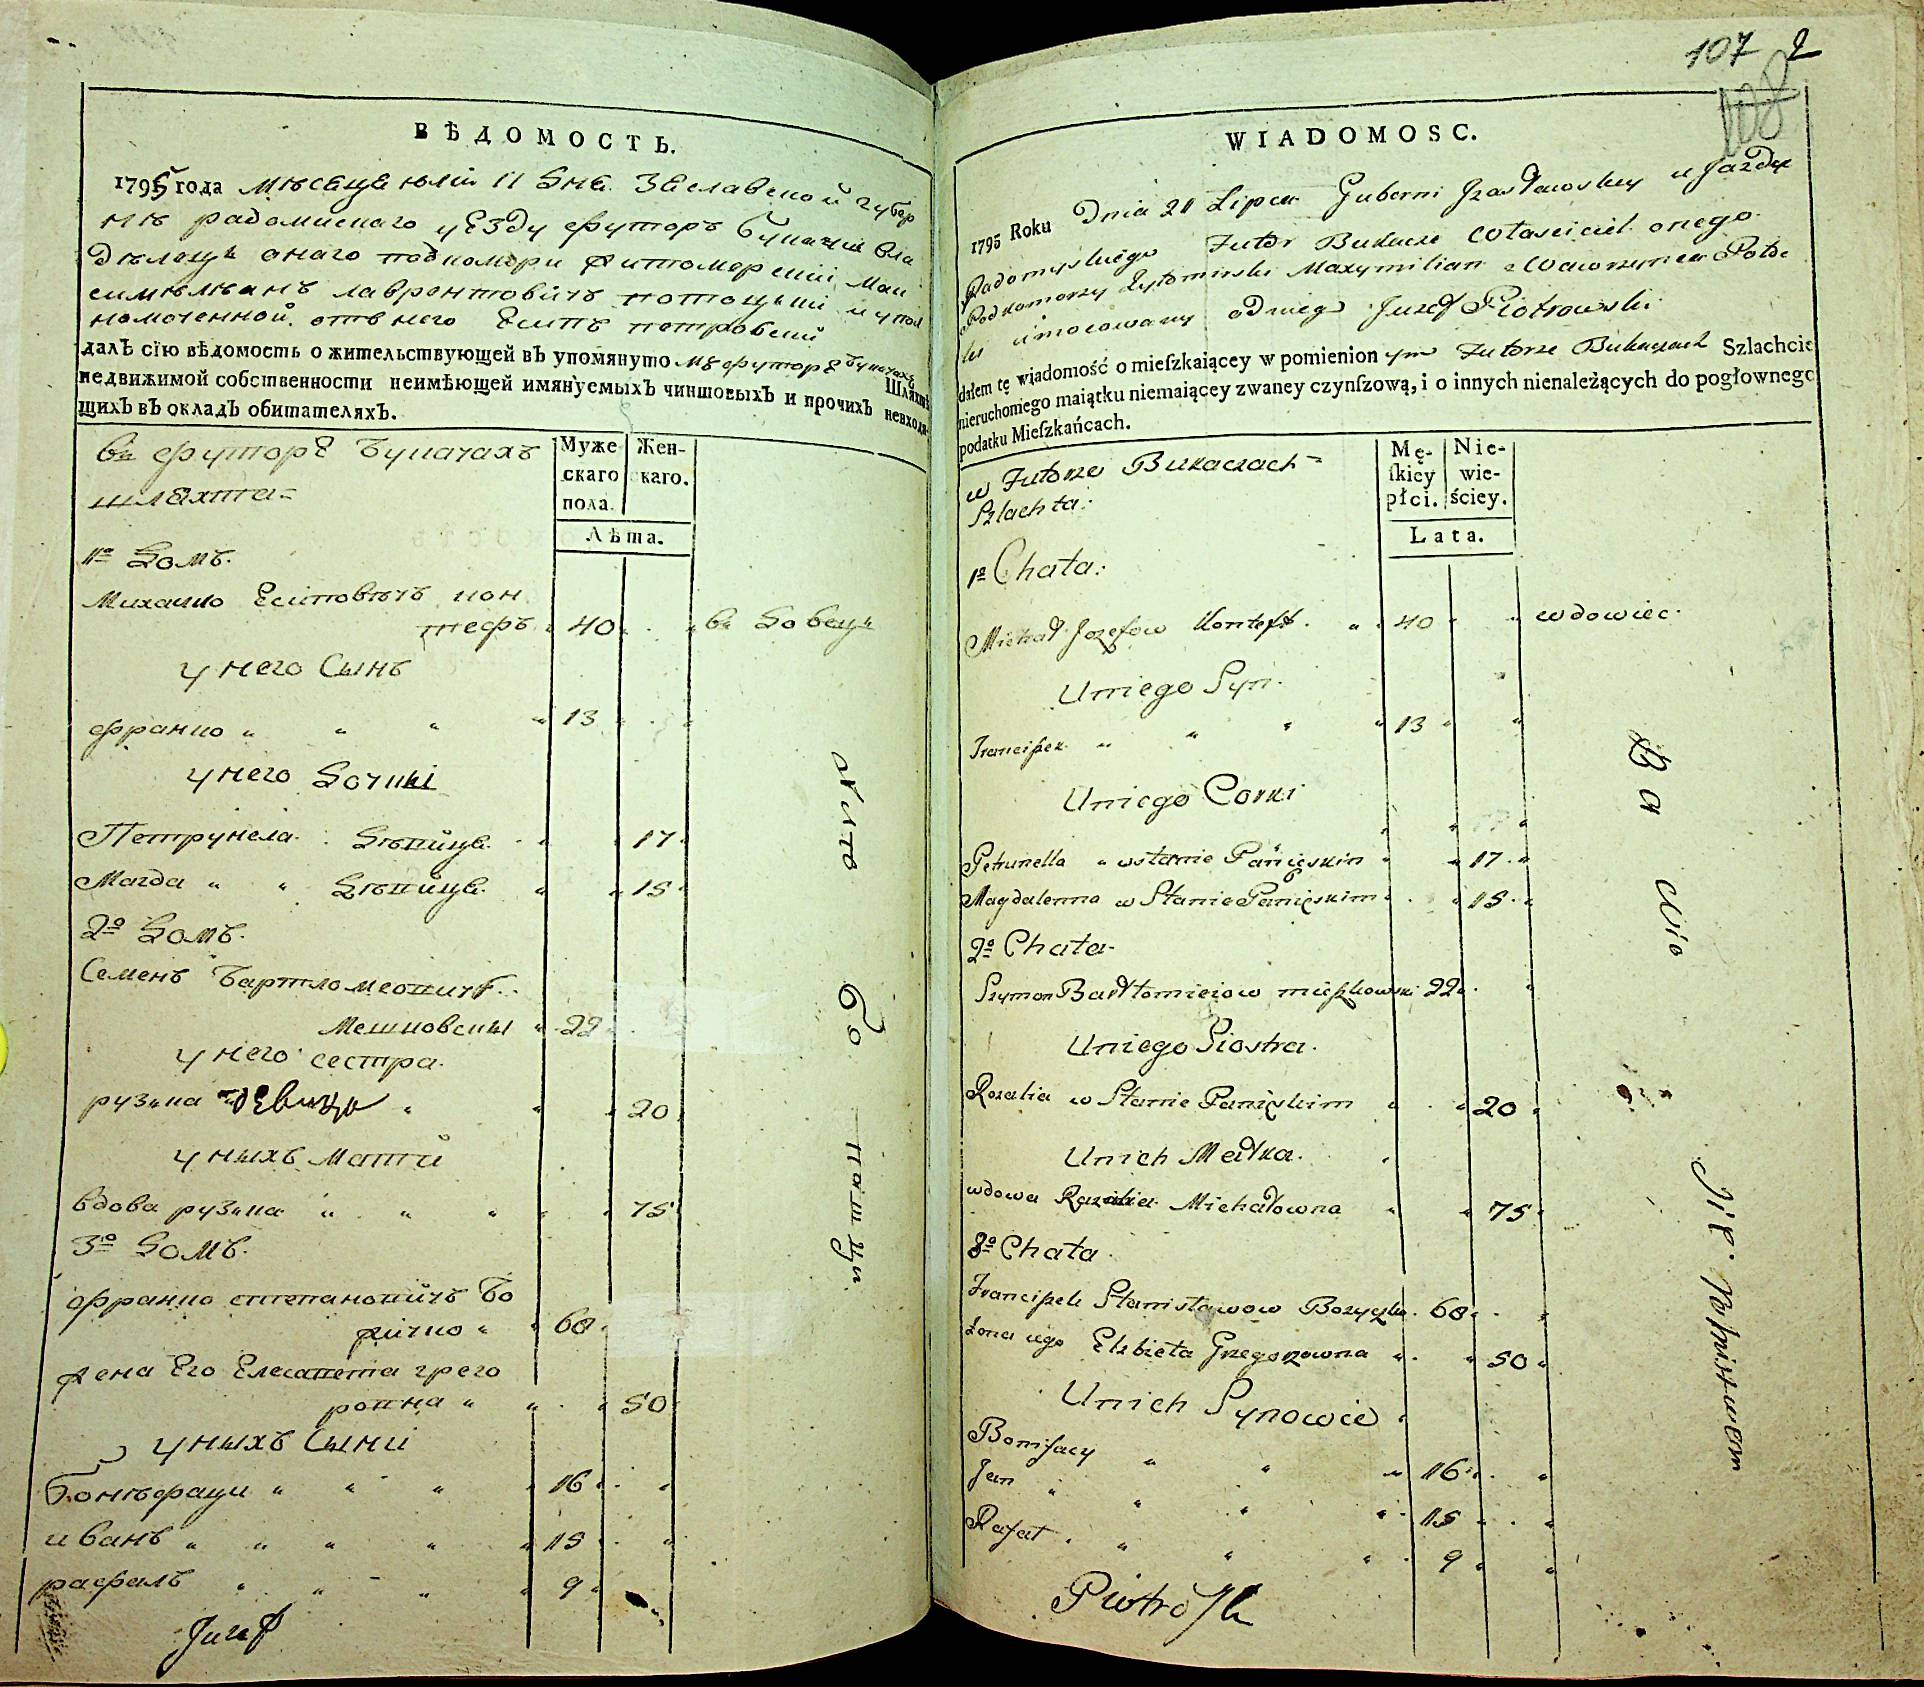 107 2
108
ВѢДОМОСТЬ.
1795 года мѣсеца юлія 11 дня. Заславской губер
нѣ радомискаго уезду футоръ Букачи вла
дѣлецъ онаго подкомори житомерскій Мак
симелиянъ лаврентовичъ потоцкий и упол
номоченной отъ него Есипъ петровский
далъ сїю вѣдомость о жительствующей въ упомянуто мъ футоре букачахъ Шляхтѣ
недвижимой собственности неимѣющей имянуемыхъ чиншовыхъ и прочихъ невходя-
щихъ въ окладъ обитателяхъ.
Муже
скаго
пола.
Жен-
каго.
Лѣта.
въ футоре Букачахъ
шляхта
1º Домъ.
Михайло Есиповичъ кон
тефъ 40 вдовецъ
у него Сынъ
франко 13
у него дочки
Петрунела девица 17
Магда девица 15
2º Домъ.
Семенъ Бартломеовичъ
Мешковски 22
у него сестра
рузка девица 20
у ныхъ Мати
вдова рузка 75
3º Домъ.
франко степановичъ Бо
жичко 60
жена Его Елесавета грего
ровна 50
у ныхъ Сыни
Бонѣфаци 16
иванъ 15
рафалъ 9
Juzef
WIADOMOSC.
1795 Roku Dnia 11 Lipca Guberni Izasławskiey u Jazdu
Radomyskiego Futor Bukacze własciciel onego
Podkomorzy Zytomirski Maxymilian z Wawrzynca Potoc
ki umocowany odniego Juzef Piotrowski
dałem tę wiadomość o mieſzkaiącey w pomienion ym Futorze Bukaczach Szlachcie
nieruchomego maiątku niemaiącey zwaney czynſzową, i o innych nienależących do pogłownego
podatku Mieſzkańcach.
Mę-
ſkiey
płci.
Nie-
wie-
ściey.
Lata.
w Futorze Bukaczach
Szlachta:
1º Chata:
Michał Jozefow Konteft 40 wdowiec
Uniego Syn.
Franciszek 13
Uniego Corki
Petrunella w stanie Panięskim 17
Magdalenna w Stanie Panięskim 15
2º Chata
Szymon Bartłomieiow mieszkowski 22
Uniego Siostra.
Rozalia w Stanie Panięskim 20
Unich Matka.
wdowa Rozalia Michałowna 75
3º Chata
Franciszek Stanisławow Bozyczko 60
Zona iego Elzbieta Grzegorzowna 50
Unich Synowie
Bonifacy 16
Jan 15
Rafał 9
Piotro